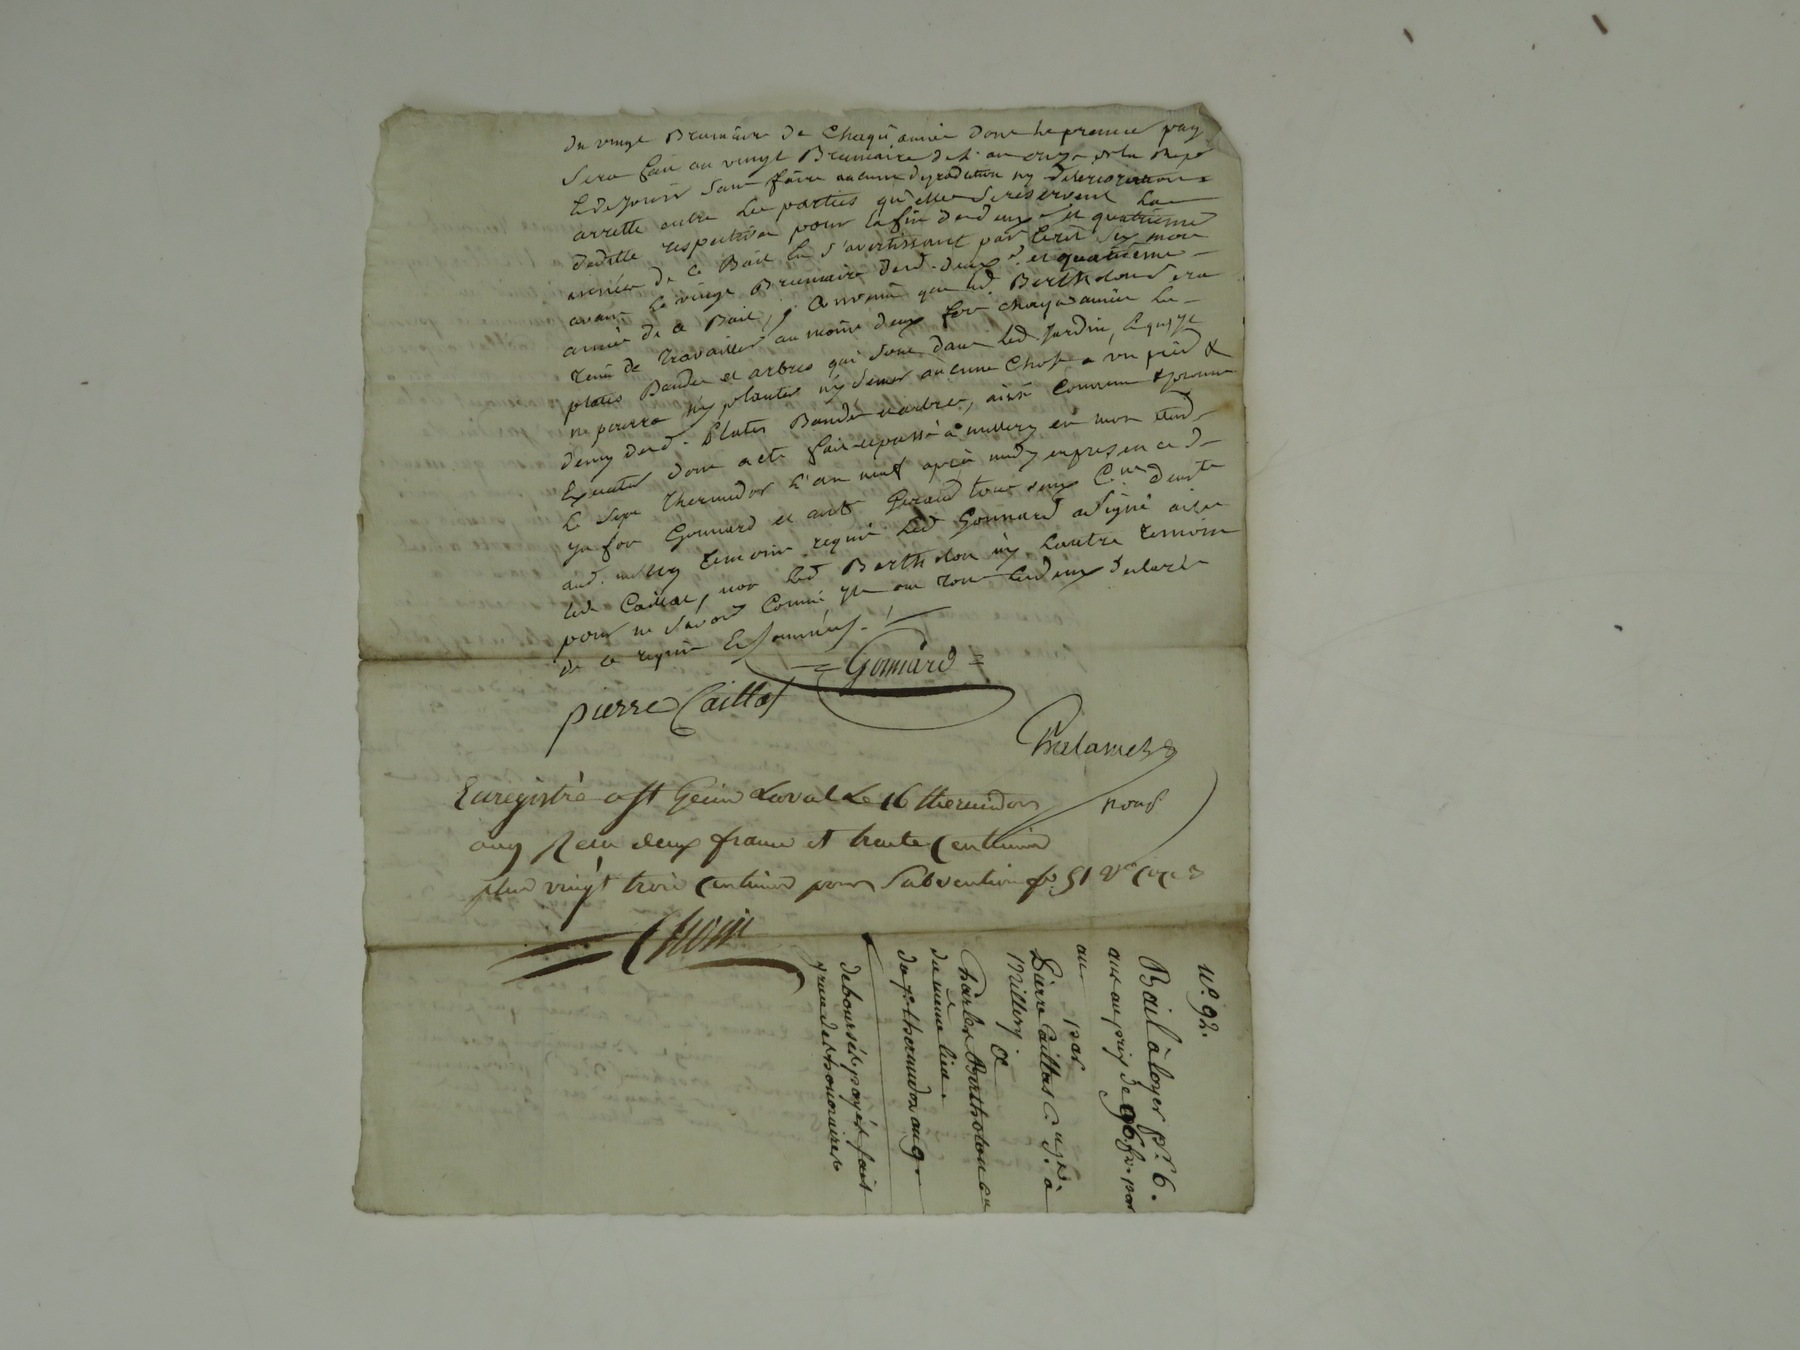 du vingt Brumaire de Chaqu'année dont le premier pay
sera fait au vingt Brumaire de l'an onze de la Rep
de jouir sans faire aucune degradation ny deterioration =
arretté entre les parties qu'elles se reservent la
deditte respective pour la fin desd. deux.e et quatrieme
années de ce Bail en s'avertissant par Ecrit six mois
avant le vingt Brumaire desd. deux.e et quatrieme
année de ce Bail, Convenu que led. Bertholon sera
tenu de travailler au moins deux fois chaque année les
plates Bandes et arbres qui sont dans led Jardin,
ne pourra n'y planter n'y semer aucune Chose a un pied &
demy desd. Plates Bandes et arbres, ainsi Convenu
Executer dont acte fait et passé à millery en mon etude
le sept Thermidor l'an neuf après midy en presence d
Gonnard et ant.e Giraud tous deux C.ens dem.ts
aud. millery temoins requis led Gonnard a signé avec
led Caillat, non led Bertholon ny Lautre temoin
pour ne savoir Comme ils ont tous les deux declarés
de ce requis Et sommés.
= Gonnard =
pierre Caillat
nors
Enregistré a St Genis Laval Le 16 thermidor
an 9 Reçu deux francs et trente Centimes
plus vingt trois Centimes pour Subvention f.o 51 V.o C.e 3
n.o 92.
Bail à loyer p.r 6.
ans au prix de 96 fr. par
an
par
Pierre Caillat C.en à
Millery
&
Charles Bertholon C.en
du même lieu.
du 7 thermidor an 9
deboursés payés fait
grace des honoraires